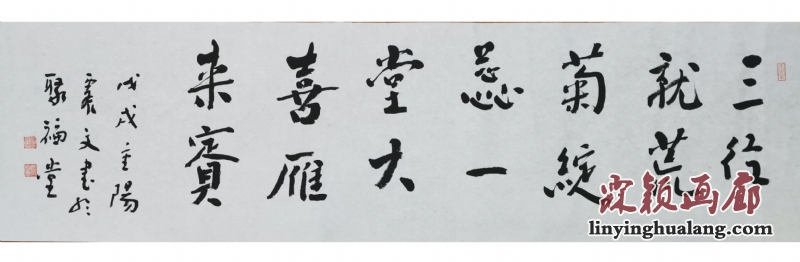 三径
就荒
菊绽
蕊一
堂大
喜雁
来賓
戊戌重陽
霖文书於
聚福堂
霖颖画廊
linyinghualang.com